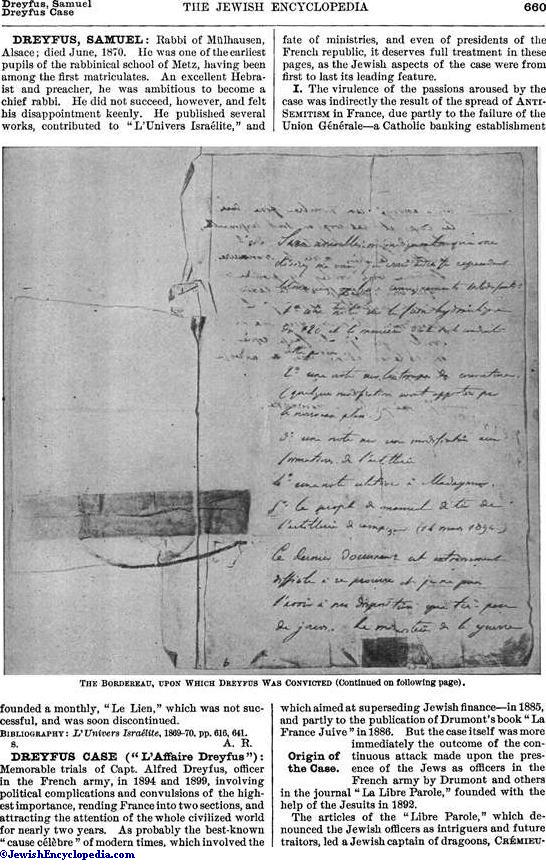 Dreyfus, Samuel
Dreyfus Case
THE JEWISH ENCYCLOPEDIA
660
DREYFUS, SAMUEL: Rabbi of Mülhausen,
Alsace; died June, 1870. He was one of the earliest
pupils of the rabbinical school of Metz, having been
among the first matriculates. An excellent Hebra-
ist and preacher, he was ambitious to become a
chief rabbi. He did not succeed, however, and felt
his disappointment keenly. He published several
works, contributed to "L'Univers Israélite," and
fate of ministries, and even of presidents of the
French republic, it deserves full treatment in these
pages, as the Jewish aspects of the case were from
first to last its leading feature.
I. The virulence of the passions aroused by the
case was indirectly the result of the spread of ANTI-
SEMITISM in France, due partly to the failure of the
Union Générale—a Catholic banking establishment
Sans nouvelles
cependant
renseignements intéressants
1° une note sur le frein hydraulique
du 120 et la manière
2° une note sur les troupes de couverture.
(quelques modifications seront apportées par
le nouveau plan.)
3° une note sur une modification aux
formations de l'artillerie
4° une note relative à Madagascar.
5° le projet de manuel de tir de
l'artillerie de campagne (14 mars 1894.)
Ce dernier document est extrêmement
difficile à se procurer et je ne puis
l'avoir à ma disposition que très peu
de jours. Le ministère de la guerre
THE BORDEREAU, UPON WHICH DREYFUS WAS CONVICTED (Continued on following page).
founded a monthly, "Le Lien," which was not suc-
cessful, and was soon discontinued.
BIBLIOGRAPHY: L'Univers Israélite, 1869-70, pp. 616, 641.
S. A. R.
DREYFUS CASE ("L'Affaire Dreyfus"):
Memorable trials of Capt. Alfred Dreyfus, officer
in the French army, in 1894 and 1899, involving
political complications and convulsions of the high-
est importance, rending France into two sections, and
attracting the attention of the whole civilized world
for nearly two years. As probably the best-known
"cause célèbre" of modern times, which involved the
which aimed at superseding Jewish finance—in 1885,
and partly to the publication of Drumont's book "La
France Juive" in 1886. But the case itself was more
immediately the outcome of the con-
Origin of tinuous attack made upon the pres-
the Case. ence of the Jews as officers in the
French army by Drumont and others
in the journal "La Libre Parole," founded with the
help of the Jesuits in 1892.
The articles of the "Libre Parole," which de-
nounced the Jewish officers as intriguers and future
traitors, led a Jewish captain of dragoons, CRÉMIEU-
©JewishEncyclopedia.com